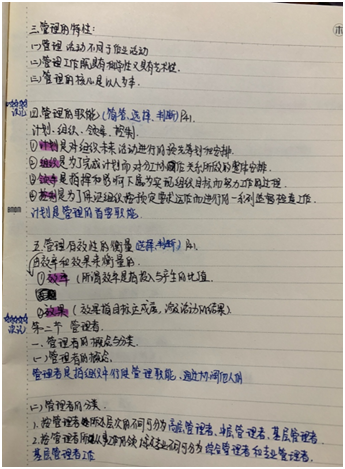 三.管理的特性:
(一)管理活动不同于作业活动
(二)管理工作既具有科学性又具有艺术性.
(三)管理的核心是以人为本.
四.管理的职能(简答、选择、判断)
计划、组织、领导、控制.
①计划是对组织未来活动进行的预先筹划和安排.
②组织是为了完成计划而对分工协作关系所做的整体安排.
③领导是指挥和影响下属为实现组织目标而努力工作的过程.
④控制是为了保证组织按预定要求运作而进行的一系列监督检查工作.
计划是管理的首要职能.
五.管理有效性的衡量(选择、判断)
由效率和效果来衡量的.
①效率(所谓效率是指投入与产出的比值.
②效果(效果指目标达成度,涉及活动的结果)
第二节 管理者.
一.管理者的概念与分类.
(一)管理者的概念.
管理者是指组织中行使管理职能、通过协调他人的
(二)管理者的分类.
1.按管理者所处层次的不同可分为高层管理者、中层管理者、基层管理者.
2.按管理者所从事的不同可分为综合管理者和专业管理者.
基层管理者